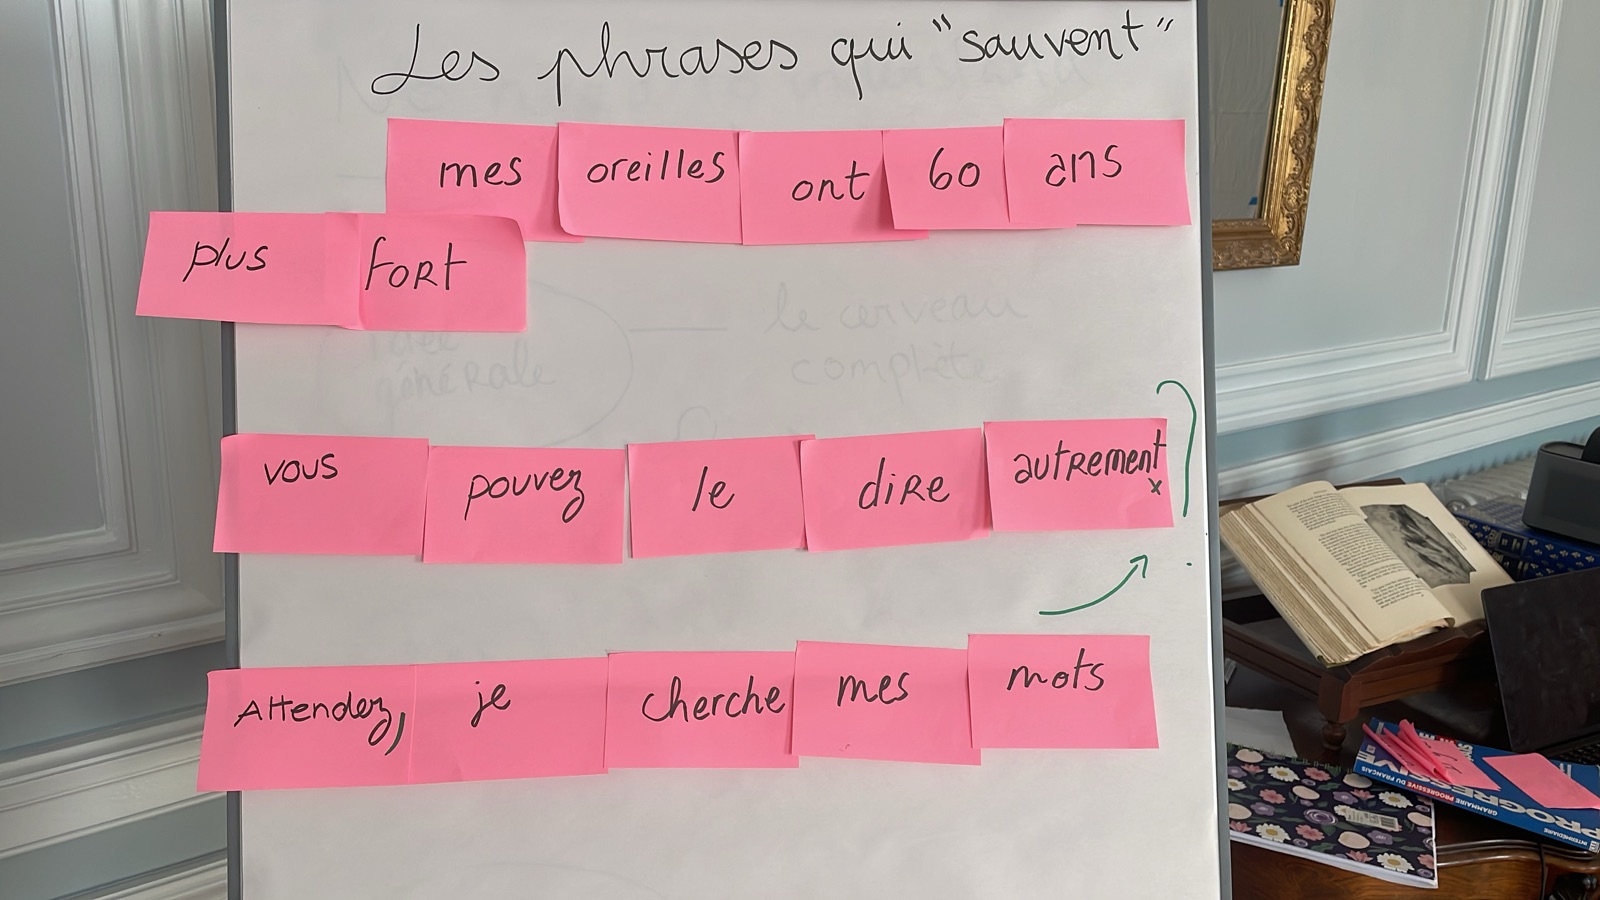 Les phrases qui "sauvent"
mes oreilles ont 60 ans
plus fort
le cerveau
générale
complète
vous pouvez le dire autrement ?
x
Attendez, je cherche mes mots
GRAMMAIRE PROGRESSIVE DU FRANÇAIS
INTERMÉDIAIRE